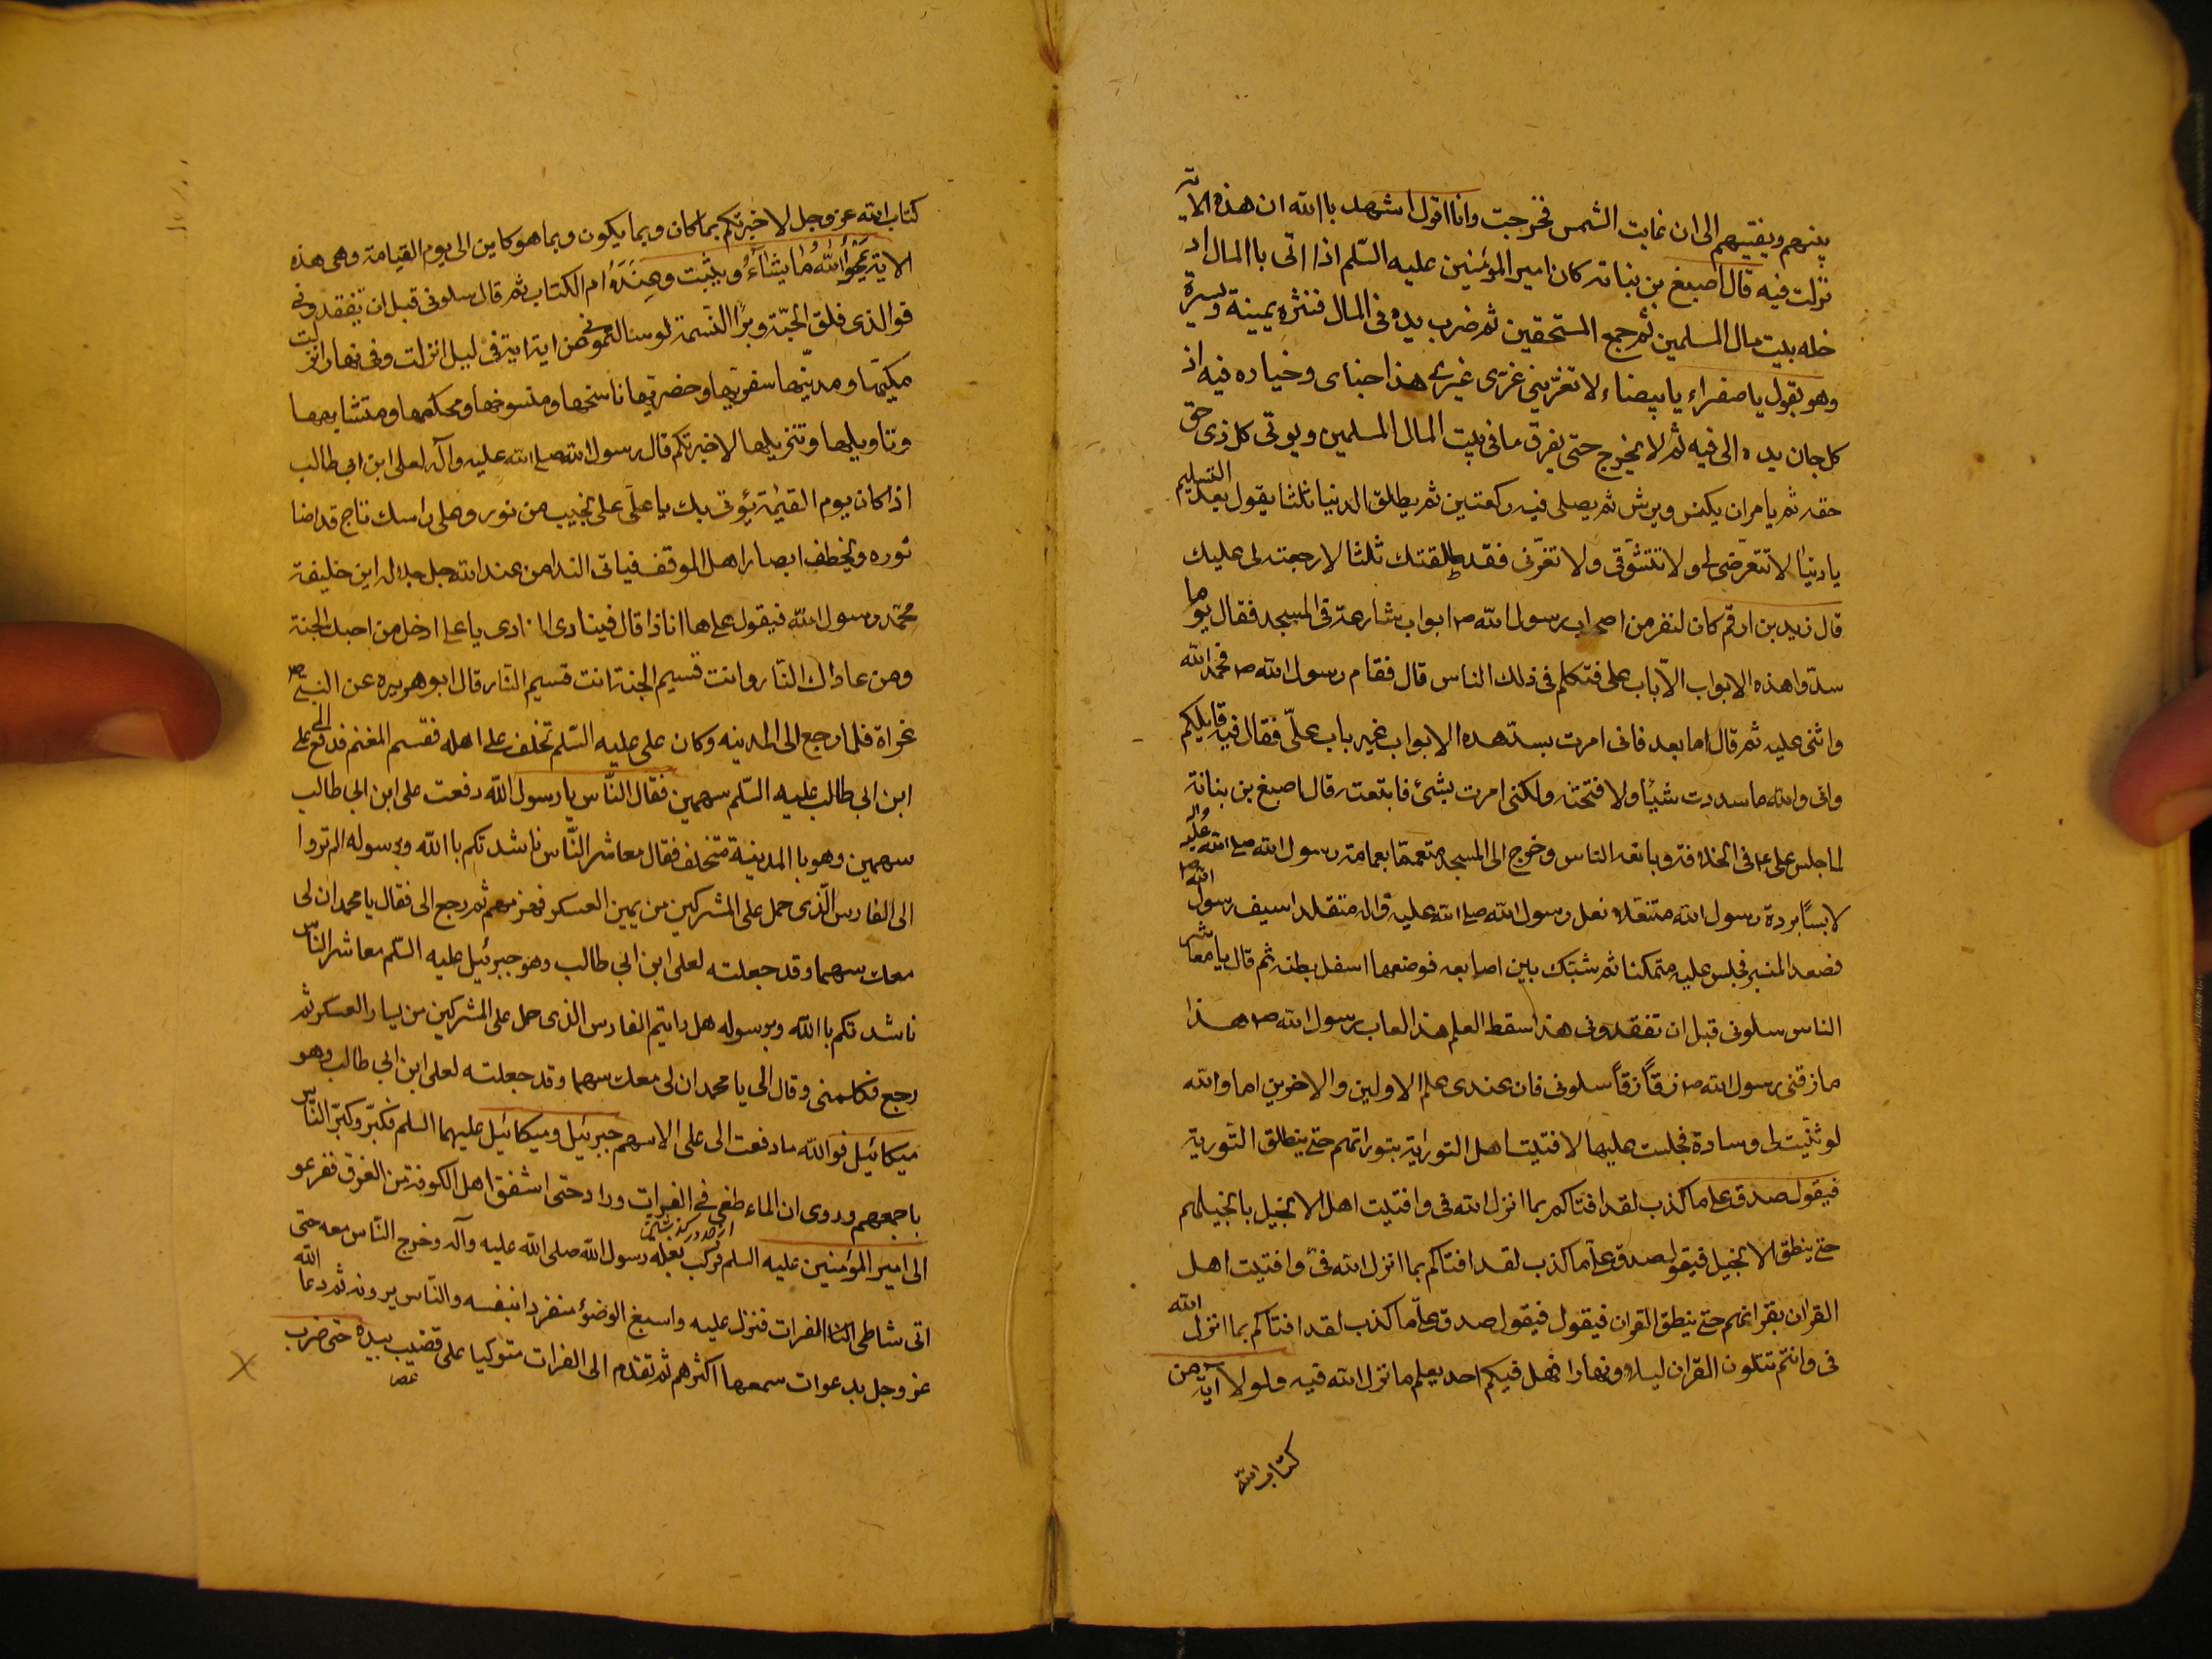 بينهم ويفتيهم الى ان غابت الشمس فخرجت وانا اقول اشهد باالله ان هذه الاية
نزلت فيه قال اصبغ بن بناته كان امير المؤمنين عليه السّلم اذا اتى باالمال اد
خله بيت مال المسلمين ثم جمع المستحقين ثم ضرب يده فى المال فنثره يمينة ويسرة
وهو يقول يا صفراء يا بيضاء لا تغرّيني غرّى غيرى هذا جناى وخياره فيه اذ
كل جان يده الى فيه ثم لا يخرج حتى يفرق ما فى بيت المال المسلمين ويوتى كل ذى حق
حقه ثم يامر ان يكنس ويرش ثم يصلى فيه ركعتين ثم يطلق الدنيا ثلثا يقول بعد التسليم
يا دنيا لا تتعرّضى لى ولا تتشوّقى ولا تغرّنى فقد طلقتك ثلثا لا رجعته لى عليك
قال زيد بن ارقم كان لنفر من اصحاب رسول الله ص ابواب شارعة فى المسجد فقال يوما
سدّوا هذه الابواب الّا باب على فتكلم فى ذلك الناس قال فقام رسول الله ص فحمد الله
واثنى عليه ثم قال اما بعد فانى امرت بسد هذه الابواب غير باب علىّ فقال فيه قايلكم
وانى والله ما سددت شيئا ولا فتحته ولكنى امرت بشئ فابتعته قال اصبغ بن بناتة
لما جلس على ع فى الخلافة وبايعه الناس وخرج الى المسجد متعمّما بعمامة رسول الله صلى الله عليه واله
لابسًا بردة رسول الله متنعّلا نعل رسول الله صلى الله عليه واله متقلدا سيف رسول الله ص
فصعد المنبر فجلس عليه متمكنا ثم شبّك بين اصابعه فوضعها اسفل بطنه ثم قال يا معاشر
الناس سلونى قبل ان تفقدونى هذا سقط العلم هذا لعاب رسول الله ص هذا
ما زقنى رسول الله ص زقاً زقاً سلونى فان عندى علم الاولين والاخرين اما والله
لو ثنّيت لى وسادة فجلست عليها لافتيت اهل التورية بتوراتهم حتى ينطق التورية
فيقول صدق على ما كذب لقد افتاكم بما انزل الله فى وافتيت اهل الانجيل بانجيلهم
حتى ينطق الانجيل فيقول صدق علىّ ما كذب لقد افتاكم بما انزل الله فىّ وافتيت اهل
القران بقرانهم حتى ينطق القران فيقول فيقول صدق علىّ ما كذب لقد افتاكم بما انزل الله
فى وانتم تتلون القران ليلا ونهارا فهل فيكم احد يعلم ما نزل الله فيه ولولا آية من
كتاب الله
كتاب الله عز وجل لاخبرتكم بما كان وبما يكون وبما هو كاين الى يوم القيامة وهى هذه
الاية يَمْحُوا اللّٰهُ مٰا يَشٰآءُ ويثبت وعِنْدَهُ ام الكتاب ثم قال سلونى قبل ان تفقدونى
فوالذى فلق الحبّة وبرًا النّسمة لو سالتمونى عن اية اية فى ليل انزلت وفى نهار انزلت
مكيّها ومدنيّها سفريّها وحضريّها ناسخها ومنسوخها ومحكمها ومتشابهها
وتاويلها وتنزيلها لاخبرتكم قال رسول الله صلى الله عليه وآله لعلى ابن ابى طالب
اذا كان يوم القيٰمة يؤتى بك يا على على نجيب من نور وعلى راسك تاج قد اضا
نوره ويخطف ابصار اهل الموقف فياتى الندا من عند الله جل جلاله اين خليفة
محمّد رسول الله فيقول على ها انا ذا قال فينادى المنادى يا على ادخل من احبك الجنة
ومن عاداك النّار وانت قسيم الجنة انت قسيم النّار قال ابو هريره عن النبىّ ص
غزاة فلما رجع الى المدينه وكان على عليه السّلم تخلف على اهله فقسم المغنم فدفع الى على
ابن ابى طالب عليه السّلم سهمين فقال النّاس يا رسول الله دفعت على ابن ابى طالب
سهمين وهو باالمدينة متخلف فقال معاشر النّاس ناشدتكم باالله ورسوله الم تروا
الى الفارس الّذى حمل على المشركين من يمين العسكر فهزمهم ثم رجع الى فقال يا محمد ان لى
معك سهما وقد جعلته لعلى ابن ابى طالب وهو جبرئيل عليه السّلم معاشر الناس
ناشدتكم باالله وبرسوله هل رايتم الفارس الذى حمل على المشركين من يسار العسكر ثم
رجع فكلمنى وقال الى يا محمد ان لى معك سهما وقد جعلته لعلى ابن ابى طالب وهو
ميكائيل فوالله ما دفعت الى على الا سهم جبرئيل وميكائيل عليهما السلم فكبّر وكبّر النّاس
باجمعهم وروى ان الماء طغى فى الفرات وزاد حتى اشفق اهل الكوفة من الغرق ففزعو
الى امير المؤمنين عليه السلم فركب بغلة رسول الله صلى الله عليه وآله وخرج النّاس معه حتى
اتى شاطى الفرات فنزل عليه واسبغ الوضؤ منفردا بنفسه والنّاس يرونه ثم دعا الله
عز وجل بدعوات سمعها اكثرهم ثم تقدم الى الفرات متوكيا على قضيب بيده حتى ضرب
عصا